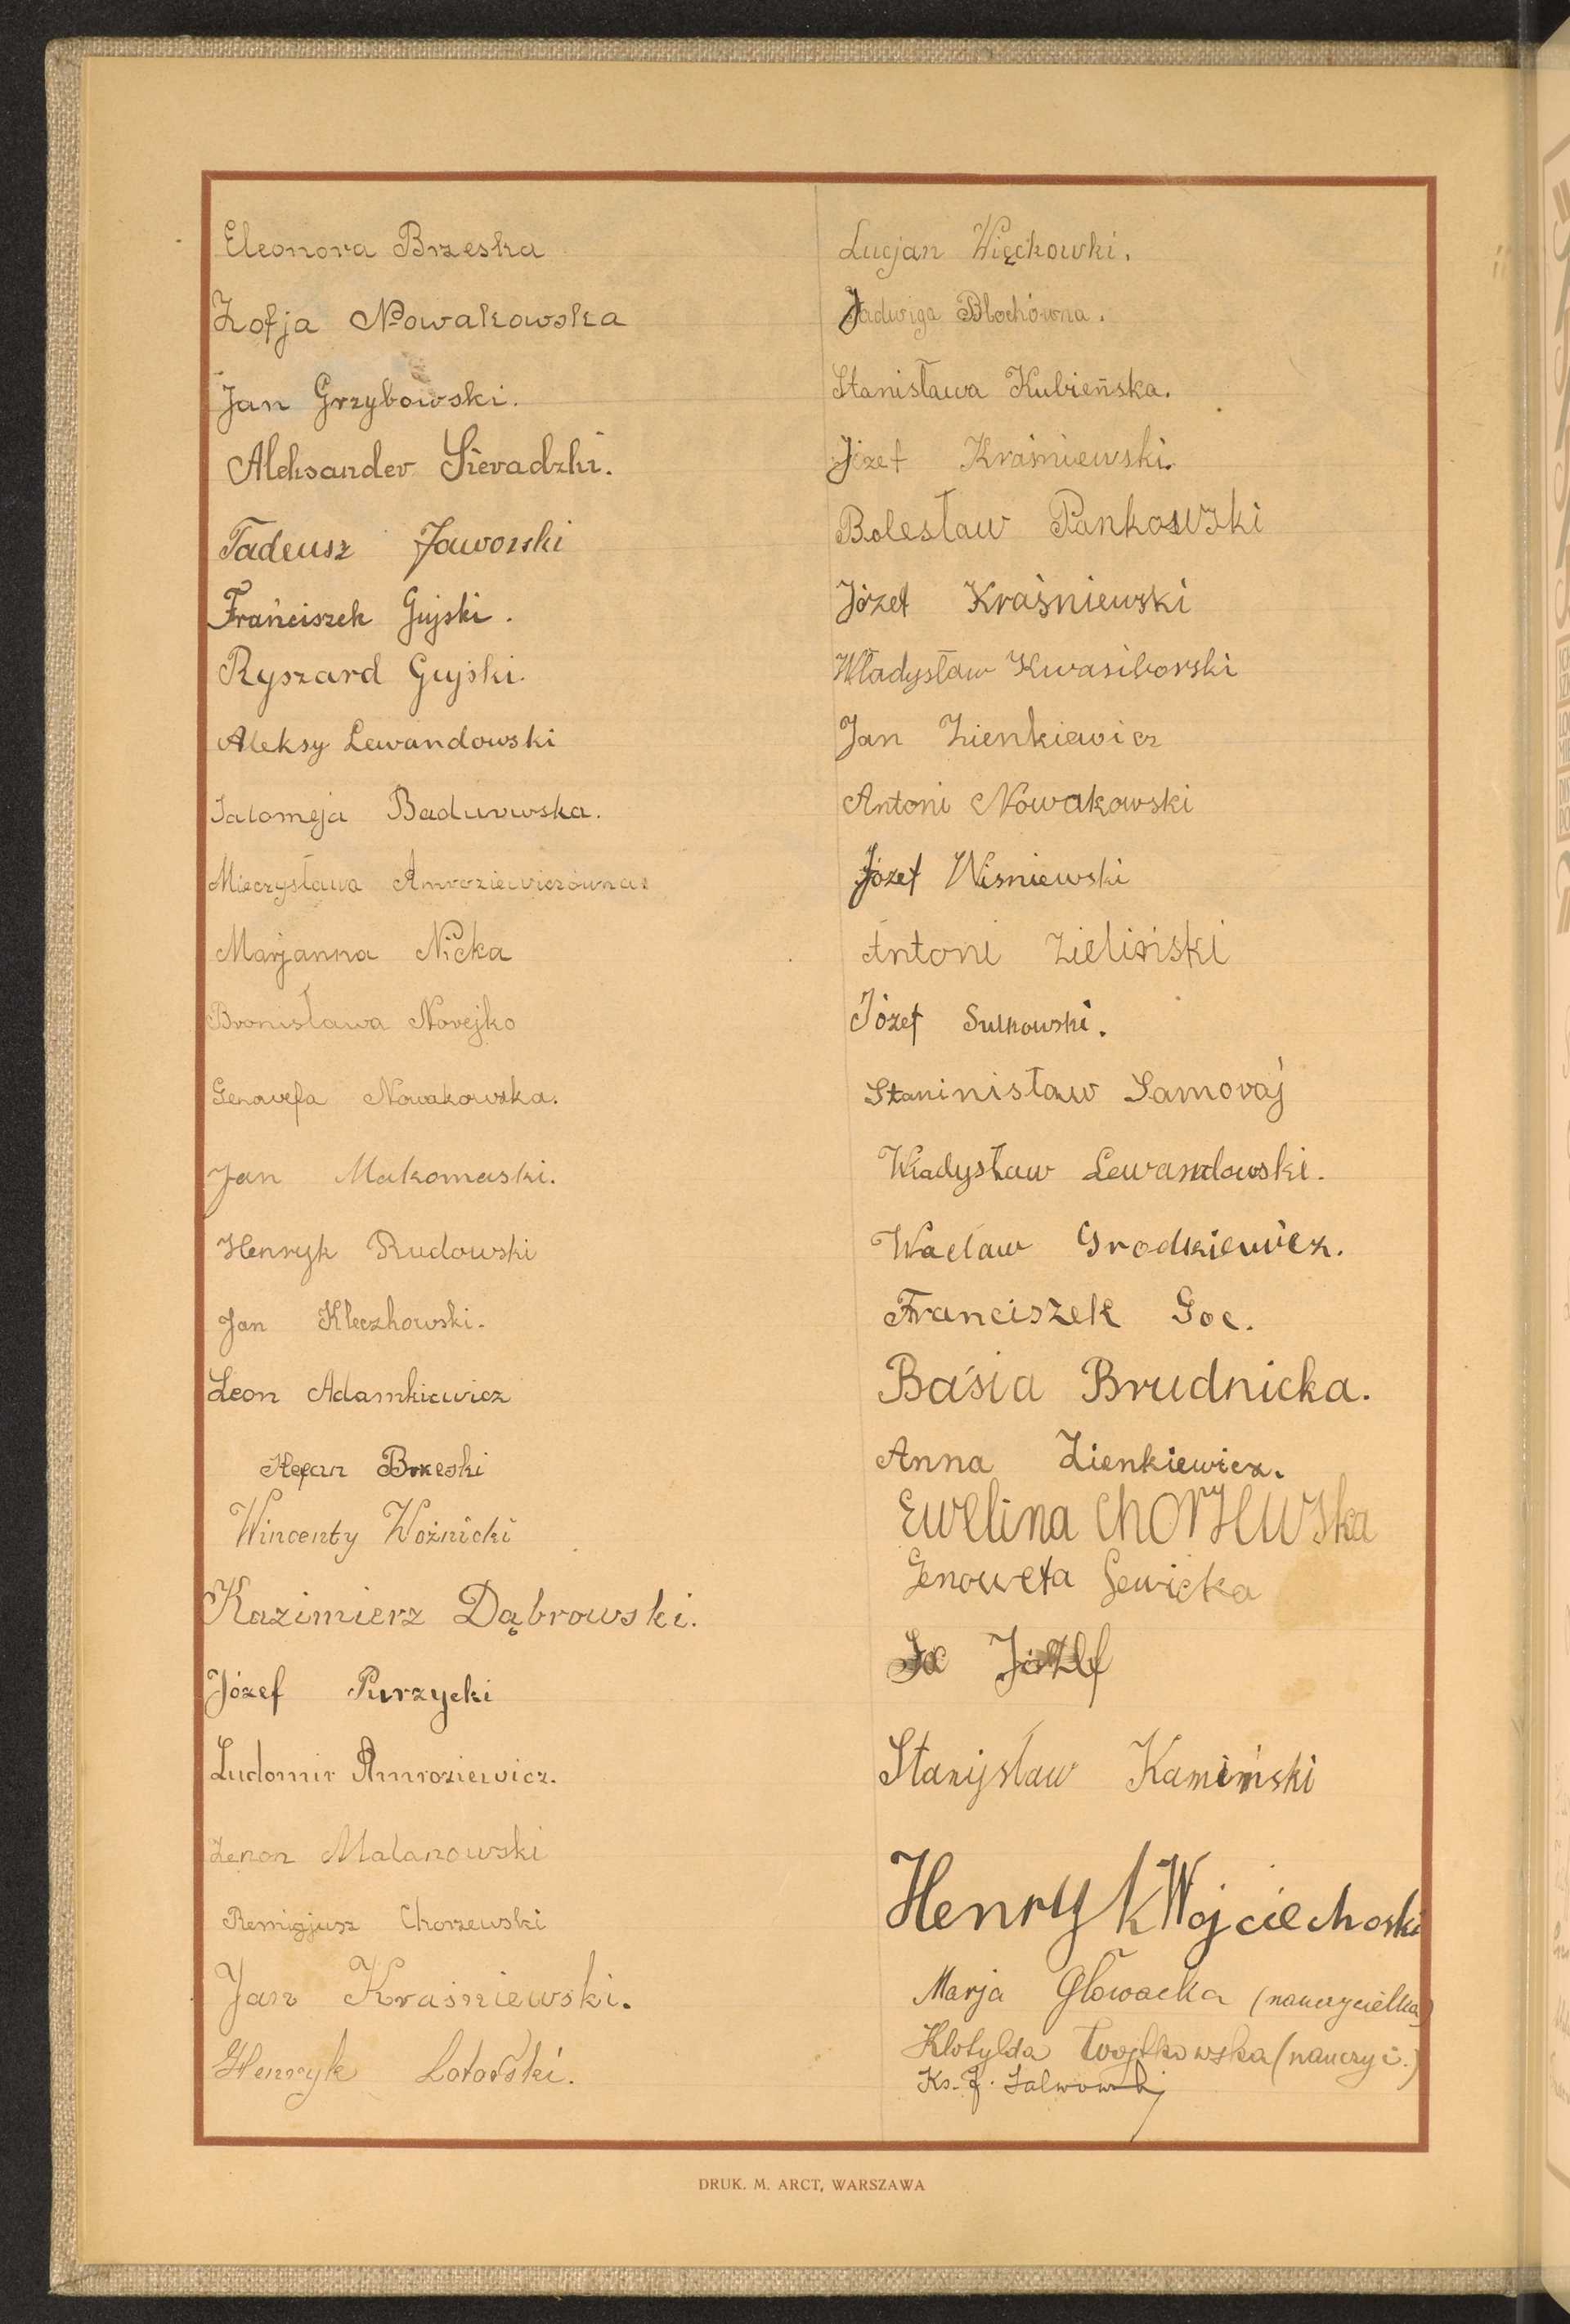 Eleonora Brzeska
Zofja Nowakowska
Jan Grzybowski.
Aleksander Sieradzki.
Tadeusz Jaworski
Franciszek Gujski.
Ryszard Gujski.
Aleksy Lewandowski
Salomeja Badurowska.
Mieczysława Amroziewiczówna.
Marjanna Nicka
Bronisława Norejko
Genowefa Nowakowska.
Jan Makomaski.
Henryk Rudowski
Jan Kleczkowski.
Leon Adamkiewicz
Brzeski
Wincenty Woźnicki
Kazimierz Dąbrowski.
Józef Purzycki
Ludomir Amroziewicz.
Zenon Malanowski
Remigjusz Chorzewski
Jan Kraśniewski.
Henryk Lotorski.
Lucjan Więckowski.
Jadwiga Blochówna.
Stanisława Kubieńska.
Józef Kraśniewski.
Bolesław Pankowski
Józef Kraśniewski
Władysław Kwasiborski
Jan Zienkiewicz
Antoni Nowakowski
Józef Wiśniewski
Antoni Zieliński
Józef Sulkowski.
Staninisław Samoraj
Władysław Lewandowski.
Wacław Grodkiewicz.
Franciszek Goc.
Basia Brudnicka.
Anna Zienkiewicz.
Ewelina Chorzewska
Genowefa Sewicka
Józef
Stanisław Kamiński
Henryk Wojciechoski
Marja Głowacka (nauczycielka)
Klotylda Wojtkowska (nauczyc.)
Ks. J. Zalwowski
DRUK. M. ARCT, WARSZAWA